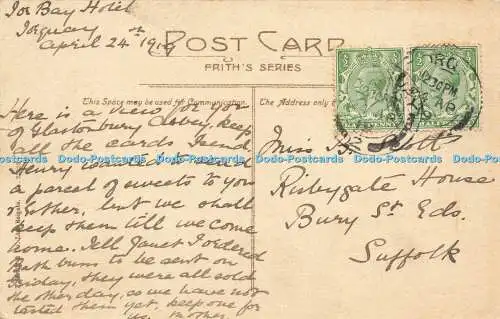 Tor Bay Hotel
Torquay
April 24th 1919
POST CARD
FRITH'S SERIES
This Space may be used for Communication.
The Address only
Here is a view for you
of Glastonbury Abbey, keep
all the cards I send.
Henry wanted to send
a parcel of sweets to you
& Esther, but we shall
keep them till we come
home. Tell Janet I ordered
Bath buns to be sent on
Friday, they were all sold
the other day, so we have not
tasted them yet, keep one for
us. Mother.
Miss Scott
Risbygate House
Bury St Eds.
Suffolk
12.30 PM
AP
Dodo-Postcards Dodo-Postcards Dodo-Postcards Dodo-Postcards Dodo-Postcards